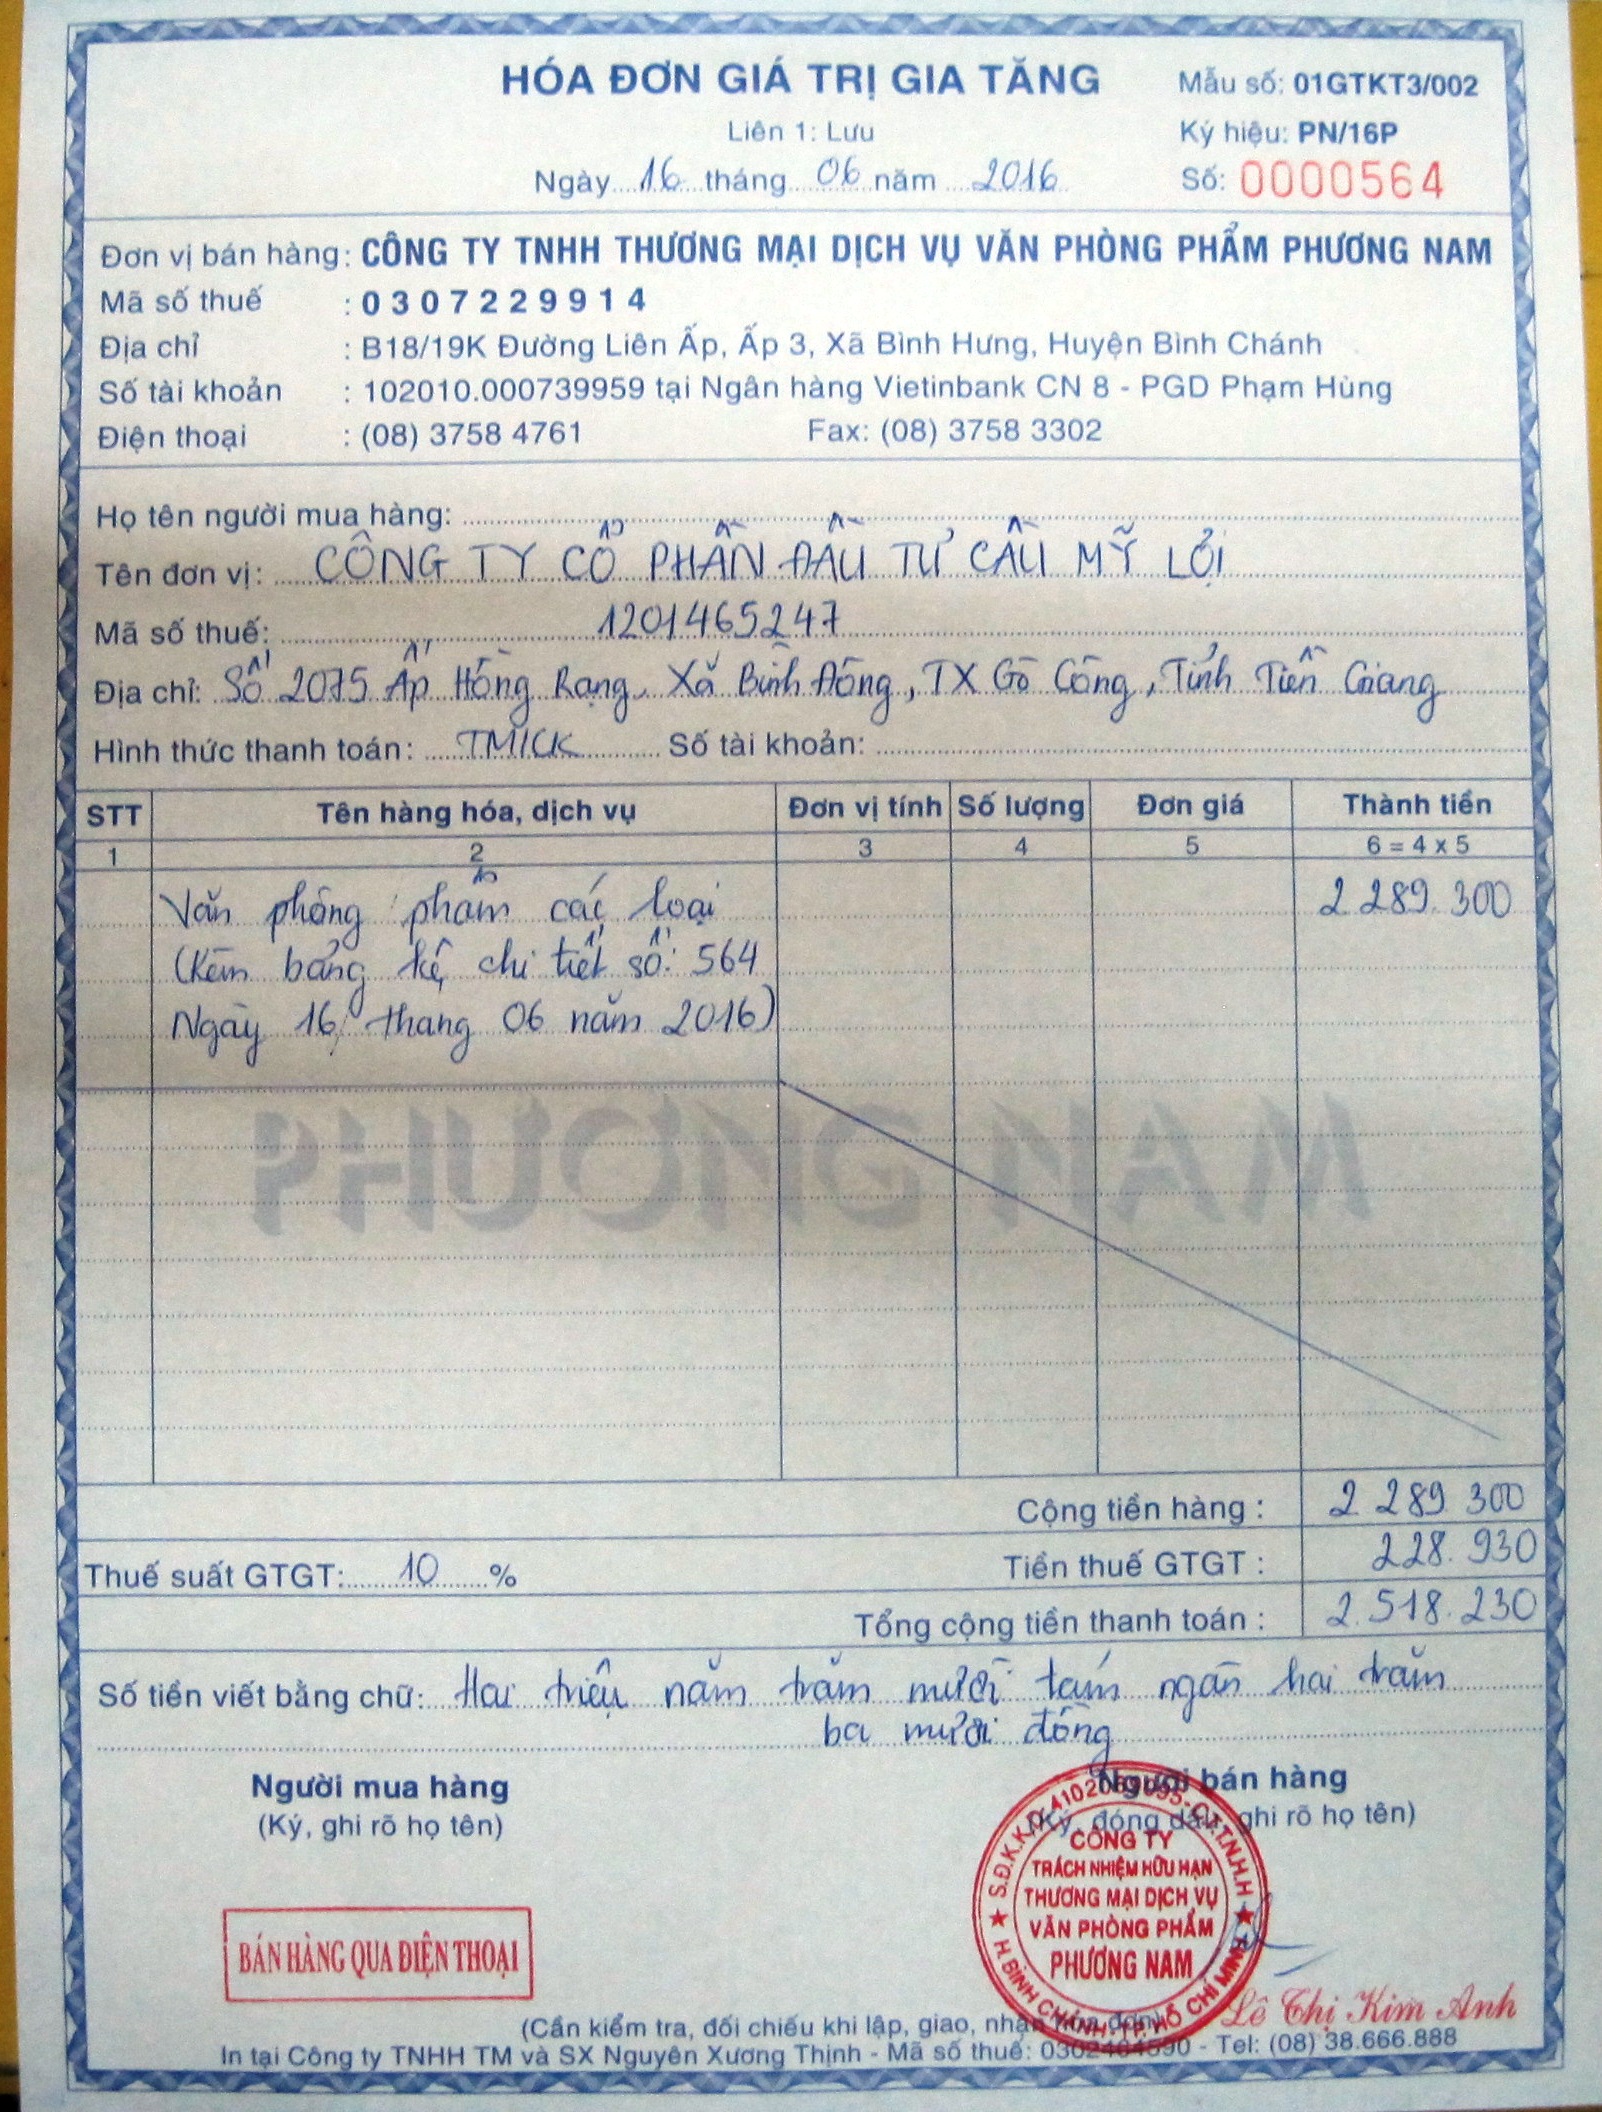 HÓA ĐƠN GIÁ TRỊ GIA TĂNG
Mẫu số: 01GTKT3/002
Liên 1: Lưu
Ký hiệu: PN/16P
Ngày 16 tháng 06 năm 2016
Số: 0000564
Đơn vị bán hàng: CÔNG TY TNHH THƯƠNG MẠI DỊCH VỤ VĂN PHÒNG PHẨM PHƯƠNG NAM
Mã số thuế : 0307229914
Địa chỉ : B18/19K Đường Liên Ấp, Ấp 3, Xã Bình Hưng, Huyện Bình Chánh
Số tài khoản : 102010.000739959 tại Ngân hàng Vietinbank CN 8 - PGD Phạm Hùng
Điện thoại : (08) 3758 4761 Fax: (08) 3758 3302
Họ tên người mua hàng:
Tên đơn vị: CÔNG TY CỔ PHẦN ĐẦU TƯ CẦU MỸ LỢI
Mã số thuế: 1201465247
Địa chỉ: Số 2075 Ấp Hồng Rạng, Xã Bình Đông, TX Gò Công, Tỉnh Tiền Giang
Hình thức thanh toán: TM/CK Số tài khoản:
STT Tên hàng hóa, dịch vụ Đơn vị tính Số lượng Đơn giá Thành tiền
1 2 3 4 5 6 = 4 x 5
Văn phòng phẩm các loại 2 289.300
(Kèm bảng kê chi tiết số: 564
Ngày 16 tháng 06 năm 2016)
PHƯƠNG NAM
Cộng tiền hàng : 2 289 300
Thuế suất GTGT: 10 % Tiền thuế GTGT : 228.930
Tổng cộng tiền thanh toán : 2.518.230
Số tiền viết bằng chữ: Hai triệu năm trăm mười tám ngàn hai trăm
ba mươi đồng
Người mua hàng Người bán hàng
(Ký, ghi rõ họ tên) (Ký, đóng dấu, ghi rõ họ tên)
CÔNG TY
TRÁCH NHIỆM HỮU HẠN
THƯƠNG MẠI DỊCH VỤ
VĂN PHÒNG PHẨM
PHƯƠNG NAM
H. BÌNH CHÁNH - TP. HỒ CHÍ MINH
BÁN HÀNG QUA ĐIỆN THOẠI
Lê Thị Kim Anh
(Cần kiểm tra, đối chiếu khi lập, giao, nhận hóa đơn)
In tại Công ty TNHH TM và SX Nguyên Xương Thịnh - Mã số thuế: 0302484590 - Tel: (08) 38.666.888